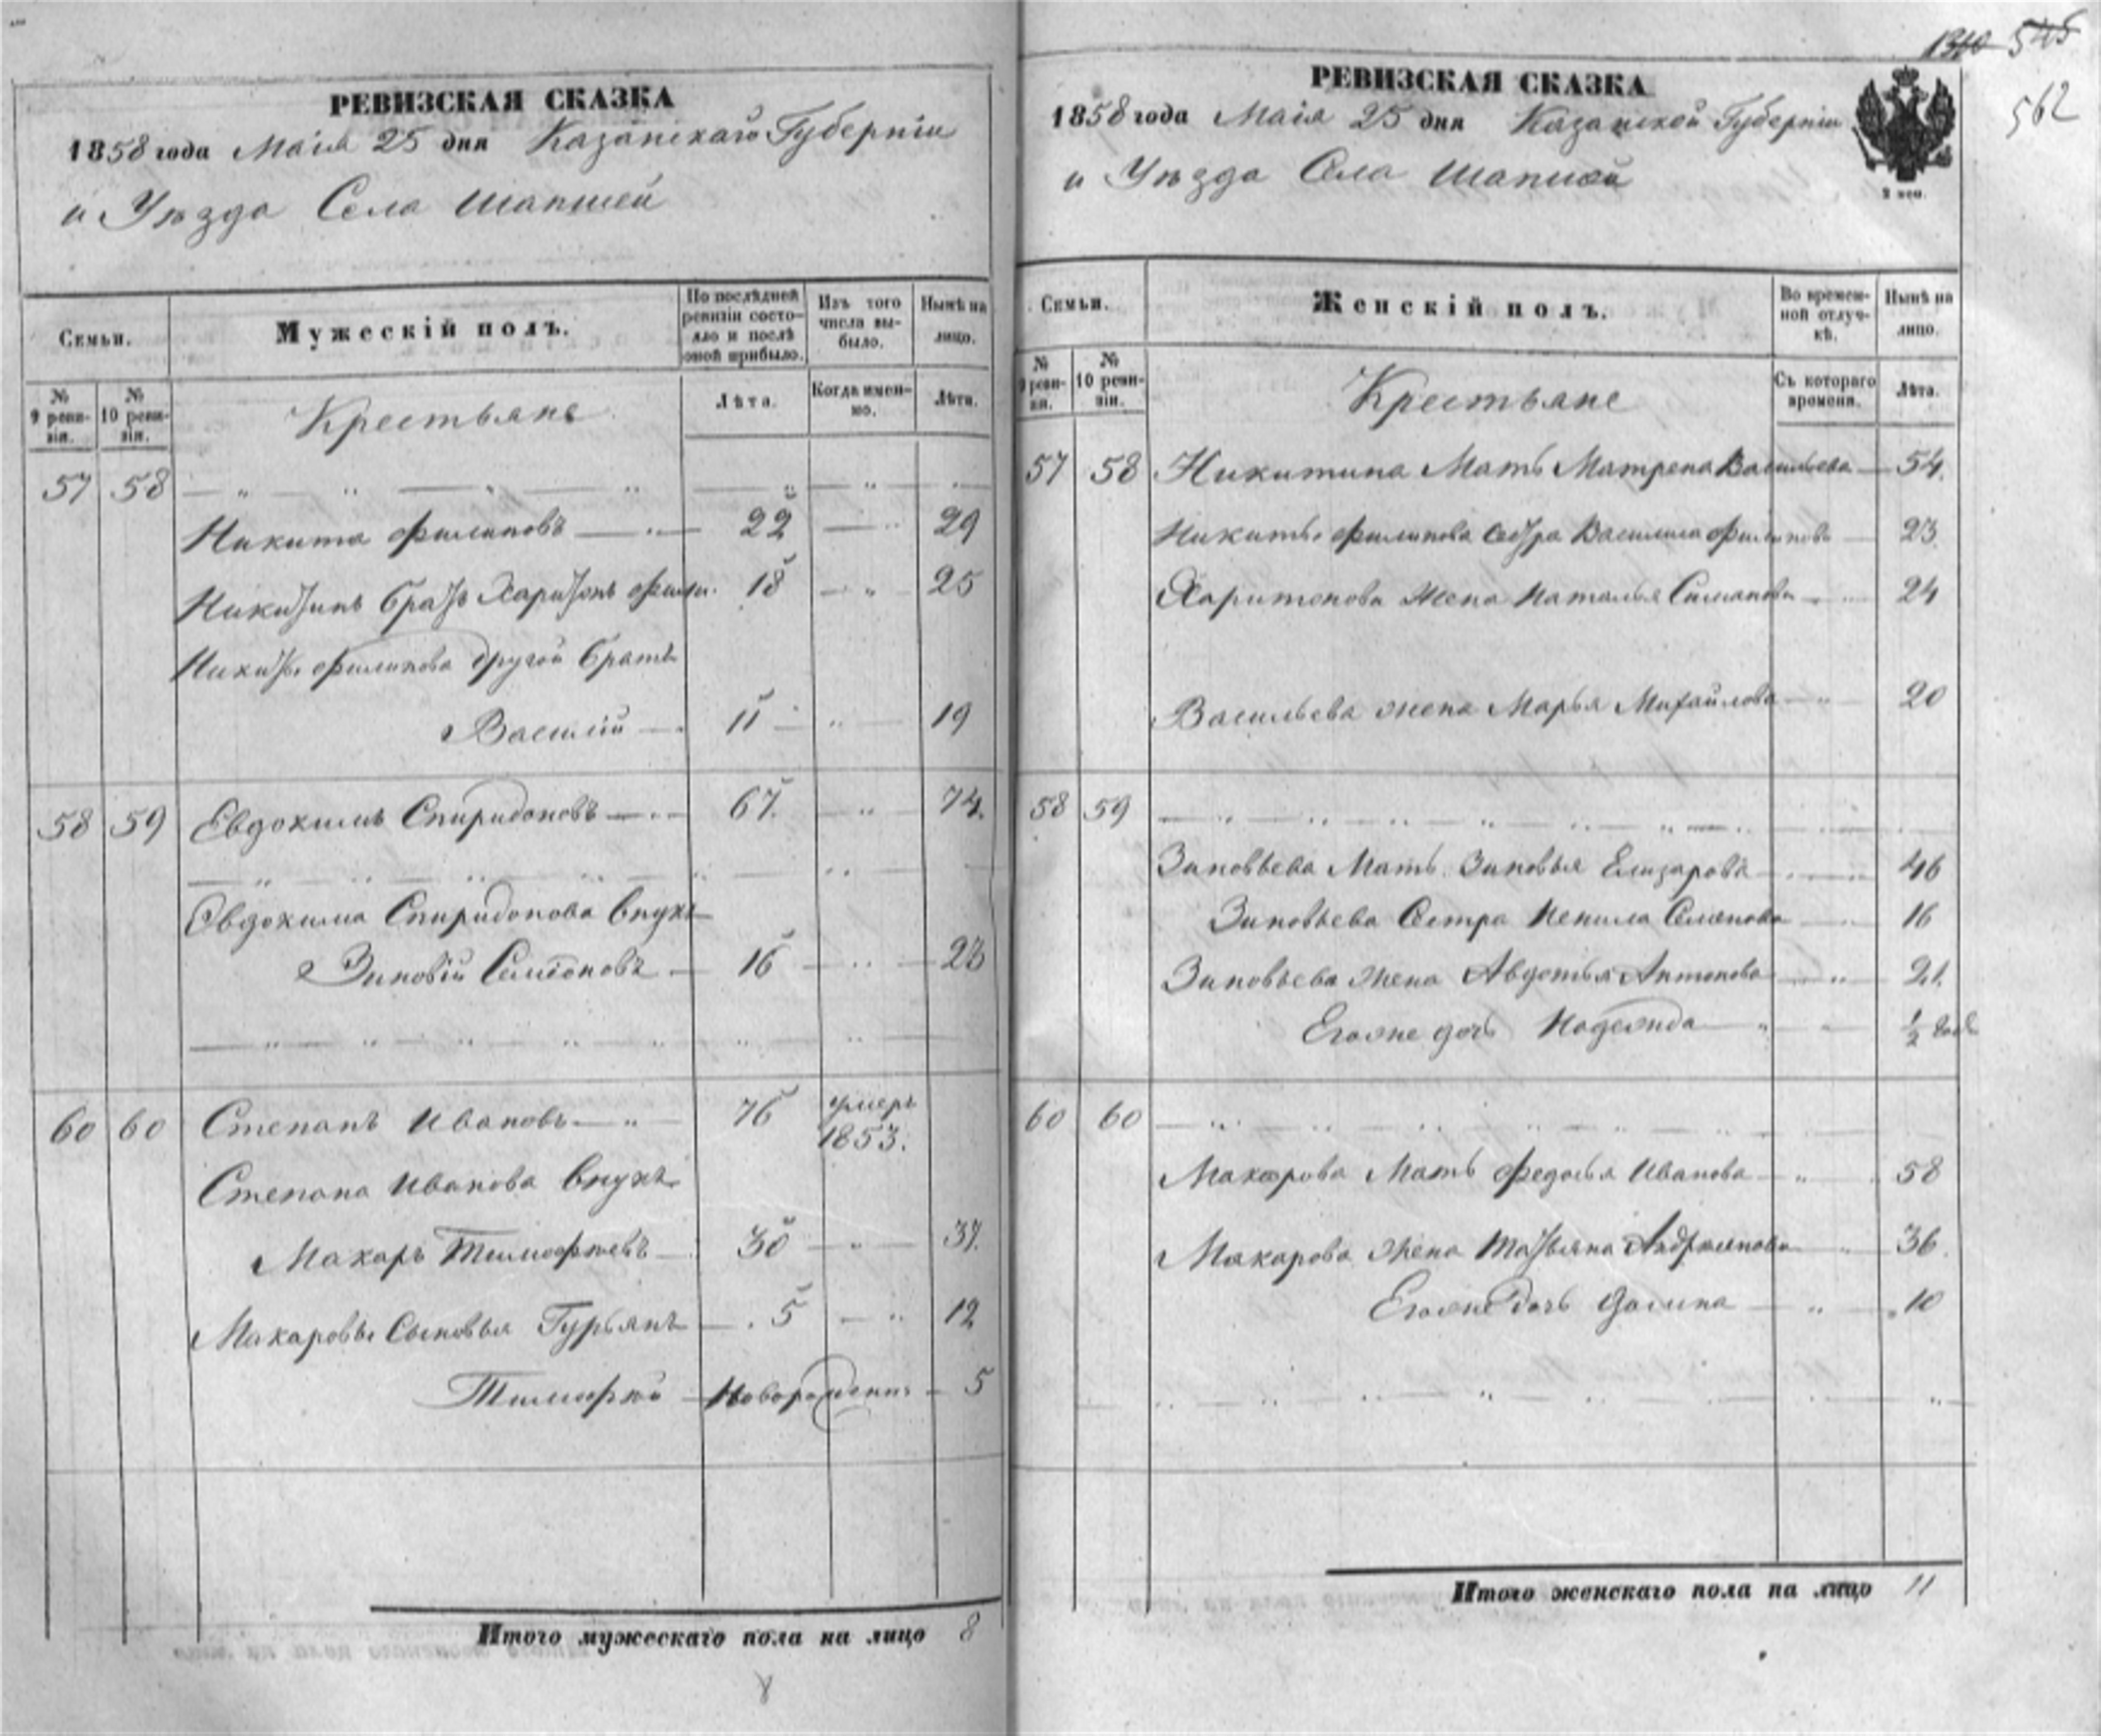 РЕВИЗСКАЯ СКАЗКА
1858 года Маія 25 дня Казанскаго Губерніи
и Уѣзда Села Шапшей
Семьи.
Мужескій полъ.
По послѣдней ревизіи состояло и послѣ оной прибыло.
Изъ того числа выбыло.
Нынѣ на лицо.
№ 9 ревизіи.
№ 10 ревизіи.
Крестьяне
Лѣта.
Когда именно.
Лѣта.
57 58
Никита Филиповъ 22 29
Никитинъ братъ Харитонъ Фили. 18 25
Никиты Филипова другой братъ
Василій 11 19
58 59 Евдокимъ Спиридоновъ 67 74.
Евдокима Спиридонова внукъ
Зиновій Семіоновъ 16 23
60 60 Степанъ Ивановъ 76 умеръ 1853.
Степана Иванова внукъ
Макаръ Тимофѣевъ 30 37.
Макаровы Сыновья Гурьянъ 5 12
Тимофѣй Новорожденн. 5
Итого мужескаго пола на лицо 8
1310 545
562
РЕВИЗСКАЯ СКАЗКА
1858 года Маія 25 дня Казанской Губерніи
и Уѣзда Села Шапшей
Семьи.
Женскій полъ.
Во временной отлучкѣ.
Нынѣ на лицо.
№ 9 ревизіи.
№ 10 ревизіи.
Крестьяне
Съ котораго времени.
Лѣта.
57 58 Никитина Мать Матрена Васильева 54.
Никиты Филипова Сестра Василиса Филипова 23
Харитонова Жена Наталья Симанова 24
Васильева жена Марья Михайлова 20
58 59
Зиновьева Мать Зиновья Елизарова 46
Зиновьева Сестра Ненила Семенова 16
Зиновьева жена Авдотья Антонова 21.
Его же дочь Надежда ½ года
60 60
Макарова Мать Федосья Иванова 58
Макарова Жена Татьяна Андреянова 36.
Его же дочь 10
Итого женскаго пола на лицо 11